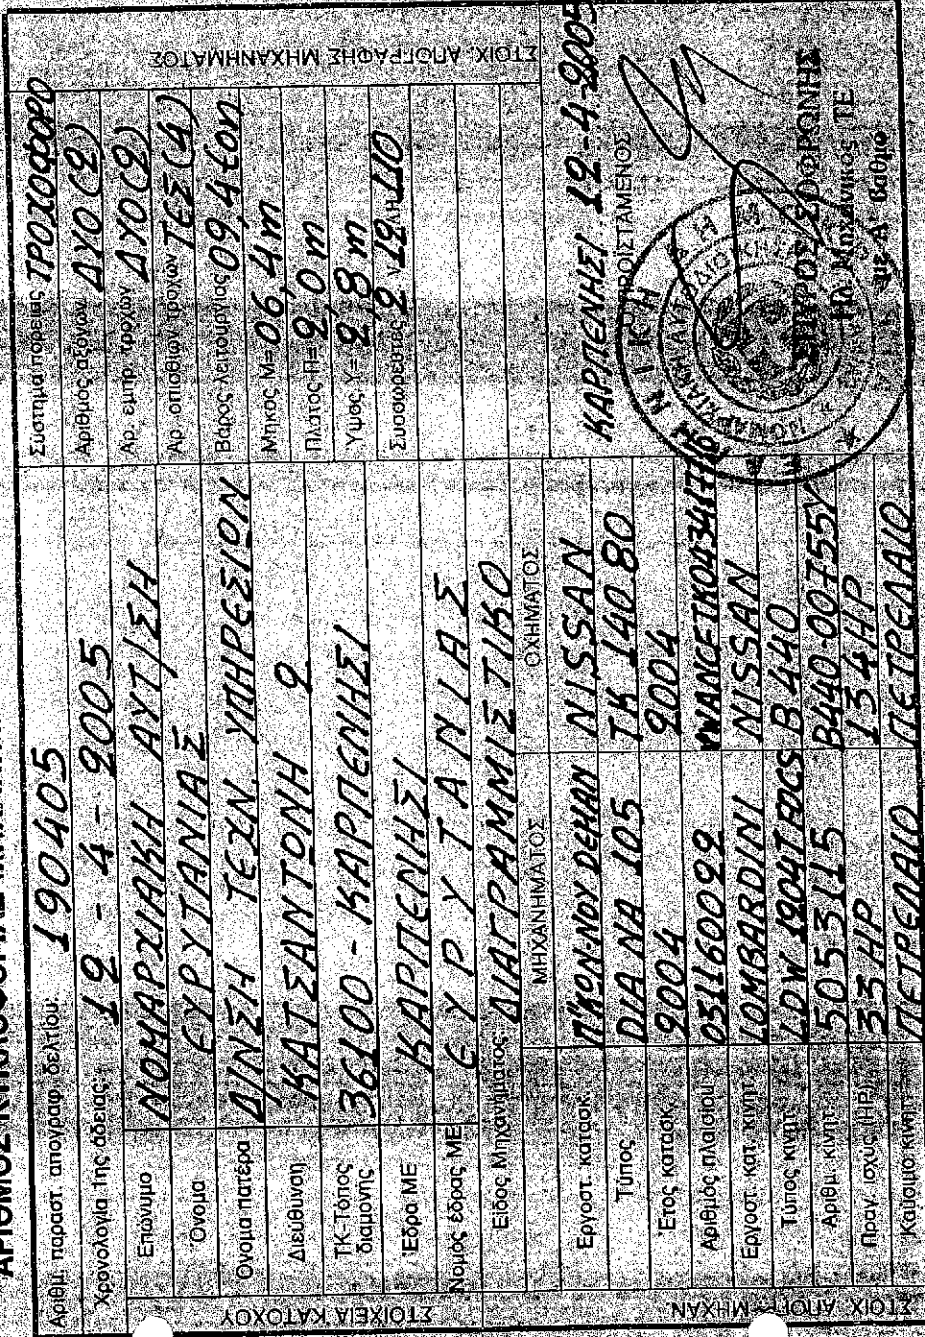 Αριθμ. παραστ. απογραφ. δελτίου: 190405
Χρονολογία 1ης άδειας: 12 - 4 - 2005
ΣΤΟΙΧΕΙΑ ΚΑΤΟΧΟΥ
Επώνυμο ΝΟΜΑΡΧΙΑΚΗ ΑΥΤ/ΣΗ
Όνομα ΕΥΡΥΤΑΝΙΑΣ
Όνομα πατέρα Δ/ΝΣΗ ΤΕΧΝ. ΥΠΗΡΕΣΙΩΝ
Διεύθυνση ΚΑΤΣΑΝΤΩΝΗ 2
ΤΚ-Τόπος διαμονής 36100 - ΚΑΡΠΕΝΗΣΙ
Έδρα ΜΕ ΚΑΡΠΕΝΗΣΙ
Νομός έδρας ΜΕ ΕΥΡΥΤΑΝΙΑΣ
Είδος Μηχανήματος ΔΙΑΓΡΑΜΜΙΣΤΙΚΟ
ΜΗΧΑΝΗΜΑΤΟΣ ΟΧΗΜΑΤΟΣ
Εργοστ. κατασκ. NISSAN
Τύπος DIANA 105 TK 140.80
Έτος κατασκ. 2004 2004
Αριθμός πλαισίου 031160022
Εργοστ. κατ. κινητ. LOMBARDINI NISSAN
Τύπος κινητ. B440
Αριθμ. κινητ. 5053115 B440-007557Y
Πραγ. ισχύς (HP) 33 HP 134 HP
Καύσιμο κίνησ. ΠΕΤΡΕΛΑΙΟ ΠΕΤΡΕΛΑΙΟ
ΣΤΟΙΧ. ΑΠΟΓΡΑΦΗΣ ΜΗΧΑΝΗΜΑΤΟΣ
Σύστημα πορείας ΤΡΟΧΟΦΟΡΟ
Αριθμός αξόνων ΔΥΟ (2)
Αρ. εμπρ. τροχών ΔΥΟ (2)
Αρ. οπισθίων τροχών ΤΕΣ (4)
Βάρος λειτουργίας 09,4 ton
Μήκος Μ= 06,4 m
Πλάτος Π= 2,0 m
Ύψος Υ= 2,8 m
ΚΑΡΠΕΝΗΣΙ 12-4-2005
Ο ΠΡΟΪΣΤΑΜΕΝΟΣ
ΣΠΥΡΟΣ ΣΩΦΡΩΝΗΣ
Πολ. Μηχανικός ΤΕ
με Α' βαθμό